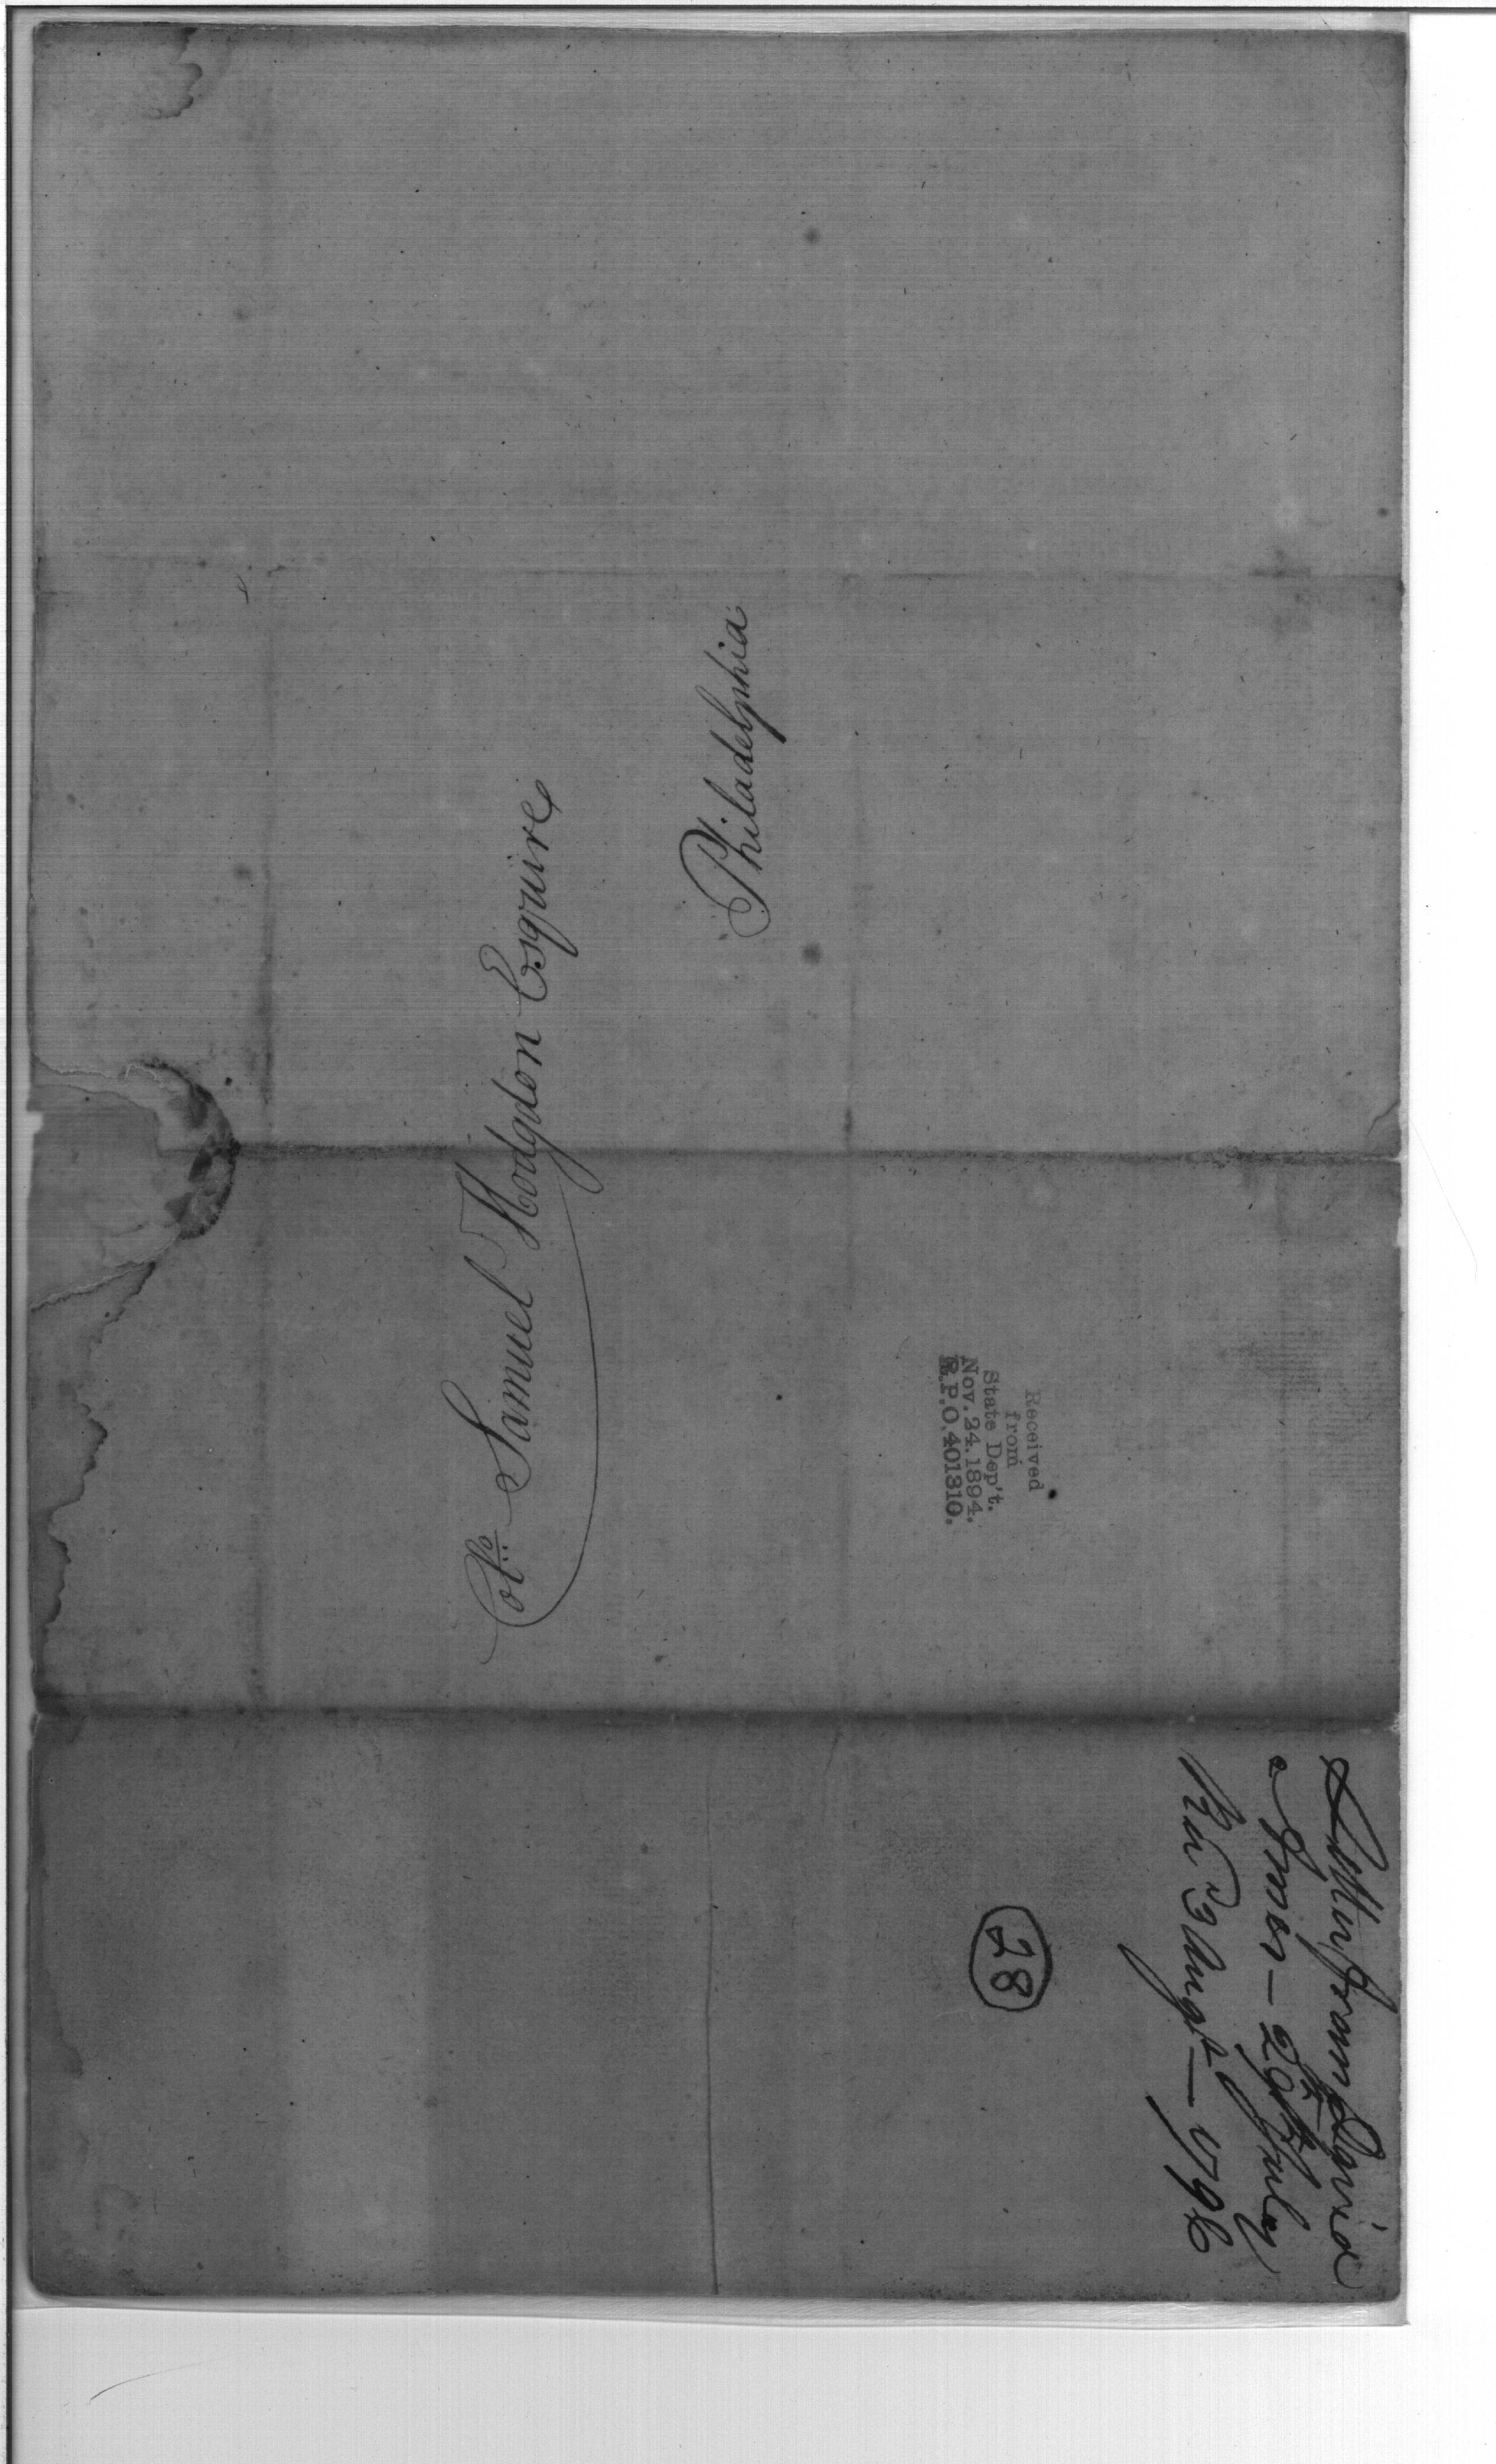 Colo. Samuel Hodgdon Esquire
Philadelphia
Received
from
State Dep't.
Nov. 24. 1894.
R.P.O. 401310.
Letter from David
29th July
3 Augt — 1796
28